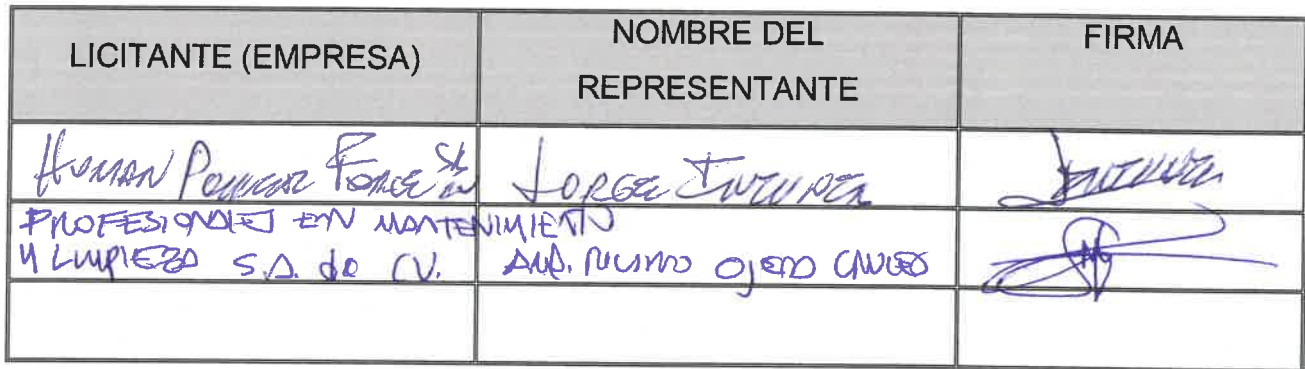 LICITANTE (EMPRESA)
NOMBRE DEL
REPRESENTANTE
FIRMA
HUMAN POWER FORCE
JORGE
PROFESIONALES EN MANTENIMIENTO
Y LIMPIEZA S.A. de CV.
OJEDA